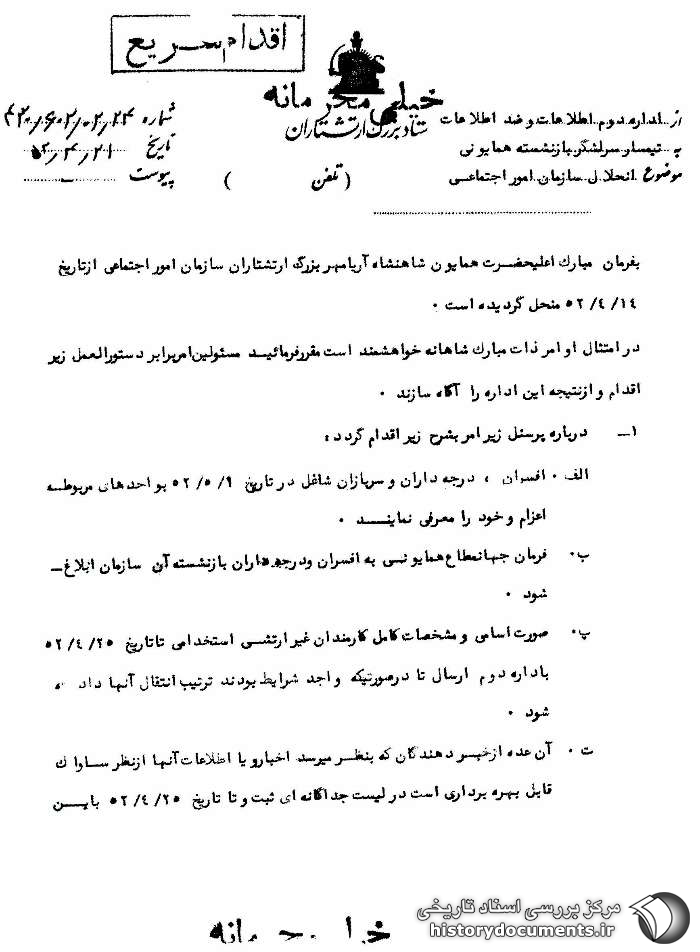 اقدام سریع
خیلی محرمانه
ستاد بزرگ ارتشتاران
از اداره دوم اطلاعات و ضد اطلاعات
به تیمسار سرلشگر بازنشسته همایونی
موضوع انحلال سازمان امور اجتماعی
(تلفن )
شماره
تاریخ
پیوست
بفرمان مبارك اعلیحضرت همایون شاهنشاه آریامهر بزرگ ارتشتاران سازمان امور اجتماعی ازتاریخ
۵۲/۴/۱۴ منحل گردیده است ۰
در امتثال اوامر ذات مبارك شاهانه خواهشمند است مقررفرمائیـد مسئولین امربرابر دستورالعمل زیر
اقدام و ازنتیجه این اداره را آگاه سازند ۰
۱ـ درباره پرسنل زیر امر بشرح زیر اقدام گردد :
الف ۰ افسران ، درجه داران و سربازان شاغل در تاریخ ۵۲/۵/۹ بواحدهای مربوطـه
اعزام و خود را معرفی نماینـد ۰
ب۰ فرمان جهانمطاع همایونـی به افسران ودرجه داران بازنشسته آن سازمان ابلاغ ـ
شود ۰
پ۰ صورت اسامی و مشخصات کامل کارمندان غیر ارتشـی استخدامی تاتاریخ ۵۲/۴/۲۵
باداره دوم ارسال تا درصورتیکه واجد شرایط بودند ترتیب انتقال آنها داده
شود ۰
ت ۰ آن عده ازخبـر دهندگان که بنظـر میرسد اخبارو یا اطلاعات آنها ازنظر سـاواك
قابل بهره برداری است در لیست جداگانه ای ثبت و تا تاریخ ۵۲/۴/۲۵ باین
خیلی محرمانه
مرکز بررسی اسناد تاریخی
historydocuments.ir